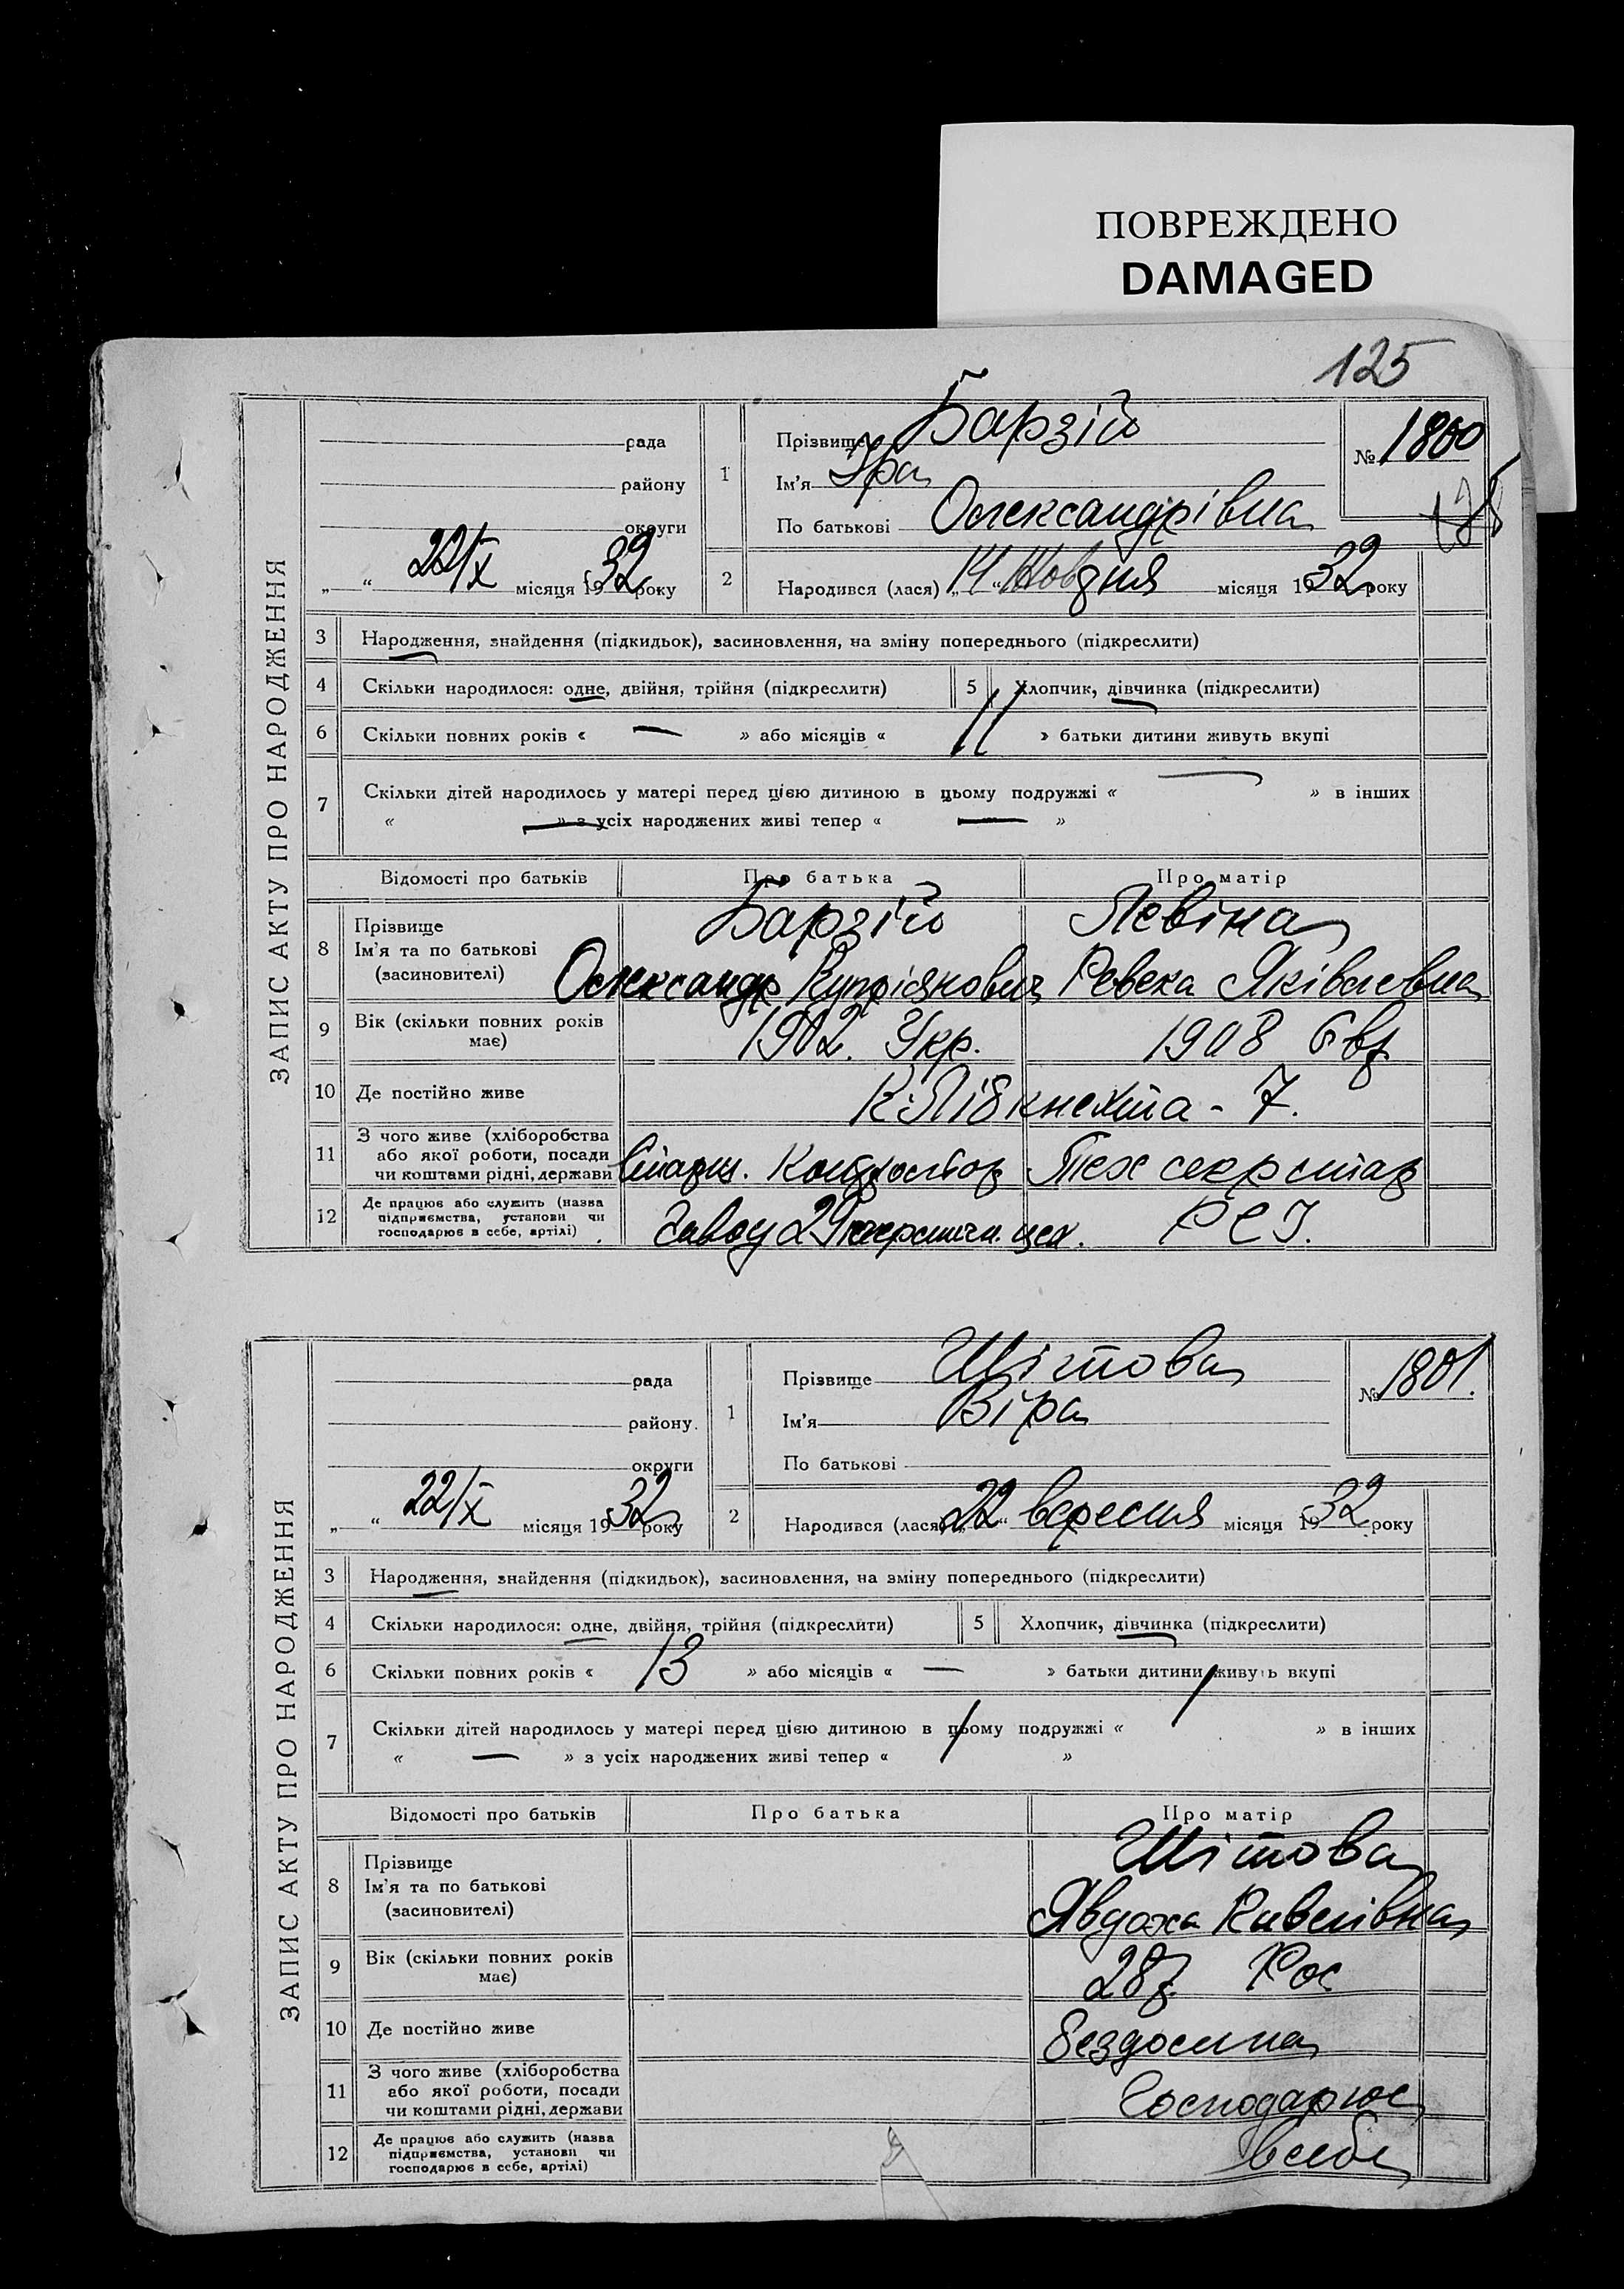 ПОВРЕЖДЕНО
DAMAGED
125
ЗАПИС АКТУ ПРО НАРОДЖЕННЯ
рада
району
округи
„ “ 22/X місяця 1932 року
1
Прізвище Барзій
Ім'я Іра
По батькові Олександрівна
№ 1800
2
Народився (лася) „14“ Жовтня місяця 1932 року
3 Народження, знайдення (підкидьок), засиновлення, на зміну попереднього (підкреслити)
4 Скільки народилося: одне, двійня, трійня (підкреслити) 5 Хлопчик, дівчинка (підкреслити)
6 Скільки повних років « — » або місяців « 11 » батьки дитини живуть вкупі
7 Скільки дітей народилось у матері перед цією дитиною в цьому подружжі « — » в інших
« — » з усіх народжених живі тепер « — »
Відомості про батьків Про батька Про матір
8 Прізвище Барзій Левіна
Ім'я та по батькові
(засиновителі) Олександр Купріянович Ревека Яківлевна
9 Вік (скільки повних років має) 1902. Укр. 1908 Євр
10 Де постійно живе К. Лібкнехта - 7.
11 З чого живе (хліборобства
або якої роботи, посади
чи коштами рідні, держави Старш. Тех секретар
12 Де працює або служить (назва
підприємства, установи чи
господарює в себе, артілі) Завод 29 термичн. цех. РСІ.
ЗАПИС АКТУ ПРО НАРОДЖЕННЯ
рада
району.
округи
„ “ 22/X місяця 1932 року
1
Прізвище Шітова
Ім'я Віра
По батькові
№ 1801.
2
Народився (лася) „22“ вересня місяця 1932 року
3 Народження, знайдення (підкидьок), засиновлення, на зміну попереднього (підкреслити)
4 Скільки народилося: одне, двійня, трійня (підкреслити) 5 Хлопчик, дівчинка (підкреслити)
6 Скільки повних років « 13 » або місяців « — » батьки дитини живуть вкупі
7 Скільки дітей народилось у матері перед цією дитиною в цьому подружжі « 1 » в інших
« — » з усіх народжених живі тепер « 1 »
Відомості про батьків Про батька Про матір
8 Прізвище Шітова
Ім'я та по батькові
(засиновителі) Явдоха
9 Вік (скільки повних років має) 28р. Рос
10 Де постійно живе
11 З чого живе (хліборобства
або якої роботи, посади
чи коштами рідні, держави Господарює
12 Де працює або служить (назва
підприємства, установи чи
господарює в себе, артілі) всебе